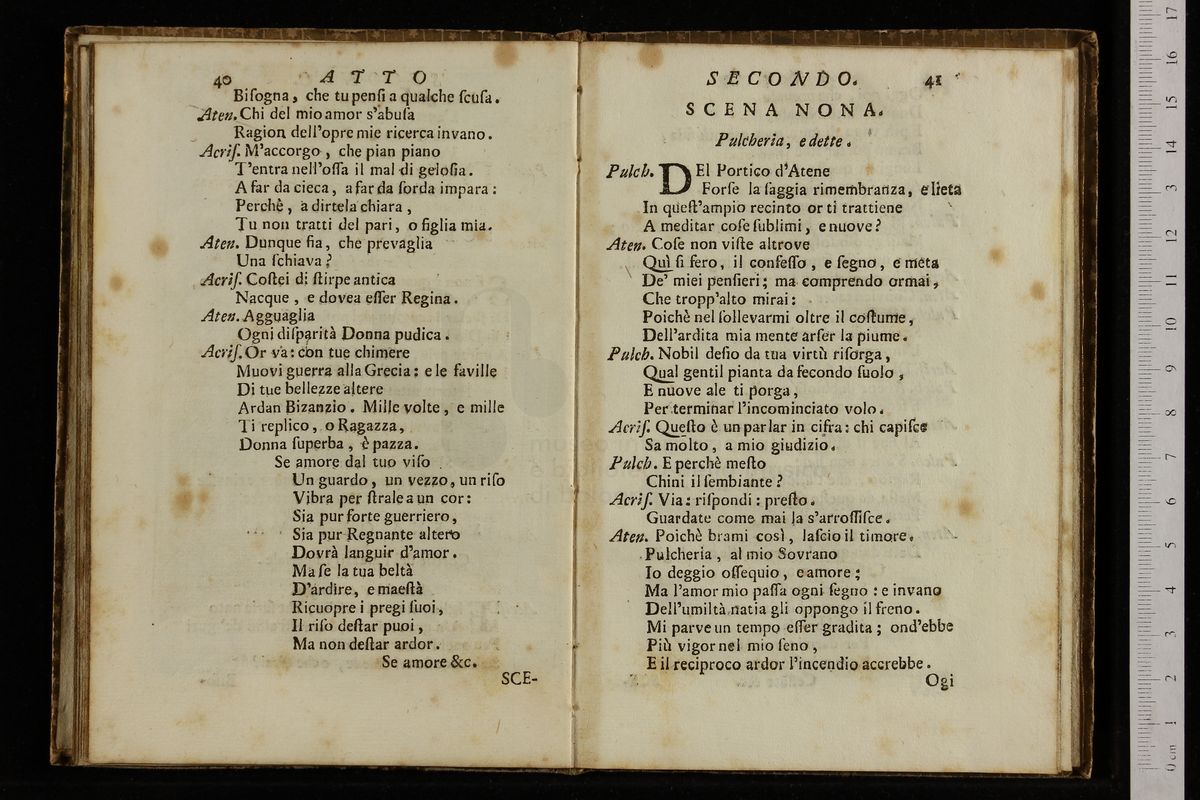 40 ATTO
Biſogna, che tu penſi a qualche ſcuſa.
Aten. Chi del mio amor s'abuſa
Ragion dell'opre mie ricerca invano.
Acriſ. M'accorgo, che pian piano
T'entra nell'oſſa il mal di geloſia.
A far da cieca, a far da ſorda impara:
Perchê, a dirtela chiara,
Tu non tratti del pari, o figlia mia.
Aten. Dunque fia, che prevaglia
Una ſchiava?
Acriſ. Coſtei di ſtirpe antica
Nacque, e dovea eſſer Regina.
Aten. Agguaglia
Ogni diſparità Donna pudica.
Acriſ. Or va: con tue chimere
Muovi guerra alla Grecia: e le faville
Di tue bellezze altere
Ardan Bizanzio. Mille volte, e mille
Ti replico, o Ragazza,
Donna ſuperba, è pazza.
Se amore dal tuo viſo
Un guardo, un vezzo, un riſo
Vibra per ſtrale a un cor:
Sia pur forte guerriero,
Sia pur Regnante altero
Dovrà languir d'amor.
Ma ſe la tua beltà
D'ardire, e maeſtà
Ricuopre i pregi ſuoi,
Il riſo deſtar puoi,
Ma non deſtar ardor.
Se amore &c.
SCE-
SECONDO. 41
SCENA NONA.
Pulcheria, e dette.
Pulch. DEl Portico d'Atene
Forſe la ſaggia rimembranza, e lieta
In queſt'ampio recinto or ti trattiene
A meditar coſe ſublimi, e nuove?
Aten. Coſe non viſte altrove
Quì ſi fero, il confeſſo, e ſegno, e meta
De' miei penſieri; ma comprendo ormai,
Che tropp'alto mirai:
Poichè nel ſollevarmi oltre il coſtume,
Dell'ardita mia mente arſer la piume.
Pulch. Nobil deſio da tua virtù riſorga,
Qual gentil pianta da fecondo ſuolo,
E nuove ale ti porga,
Per terminar l'incominciato volo.
Acriſ. Queſto è un parlar in cifra: chi capiſce
Sa molto, a mio giudizio.
Pulch. E perchè meſto
Chini il ſembiante?
Acriſ. Via: riſpondi: preſto.
Guardate come mai la s'arroſſiſce.
Aten. Poichè brami così, laſcio il timore.
Pulcheria, al mio Sovrano
Io deggio oſſequio, e amore;
Ma l'amor mio paſſa ogni ſegno: e invano
Dell'umiltà natia gli oppongo il freno.
Mi parve un tempo eſſer gradita; ond'ebbe
Più vigor nel mio ſeno,
E il reciproco ardor l'incendio accrebbe.
Ogi
0 cm 1 2 3 4 5 6 7 8 9 10 11 12 13 14 15 16 17